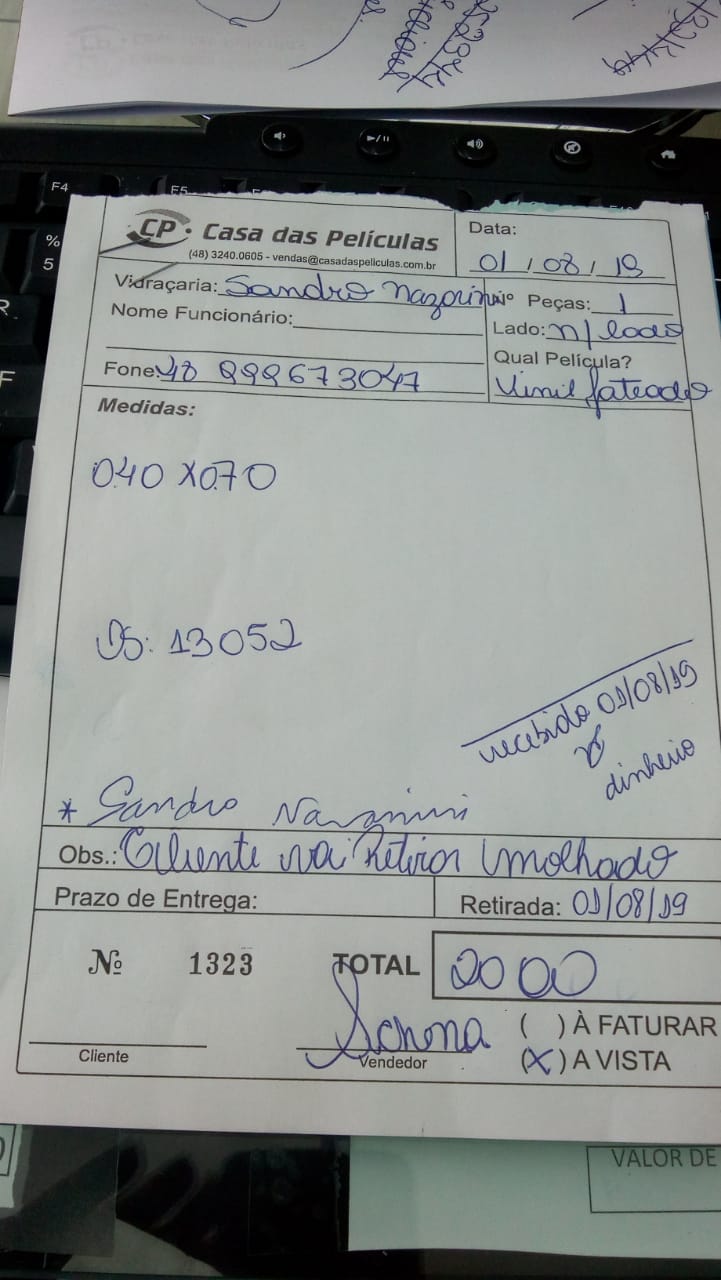 F4
F5
%
5
R
F
CP. Casa das Películas
(48) 3240.0605 - vendas@casadaspeliculas.com.br
Data:
01/08/19
Vidraçaria: Sandro
Nº Peças: 1
Nome Funcionário:
Lado: n/lado
Fone: 48 999673047
Qual Película?
Vinil Jateado
Medidas:
0.40 X 0.70
OS: 13052
recebido 01/08/19
dinheiro
* Sandro
Obs.: Cliente vai Retirar (molhado
Prazo de Entrega:
Retirada: 01/08/19
Nº 1323
TOTAL 20 00
( ) À FATURAR
Cliente
Vendedor
(X) A VISTA
VALOR DE